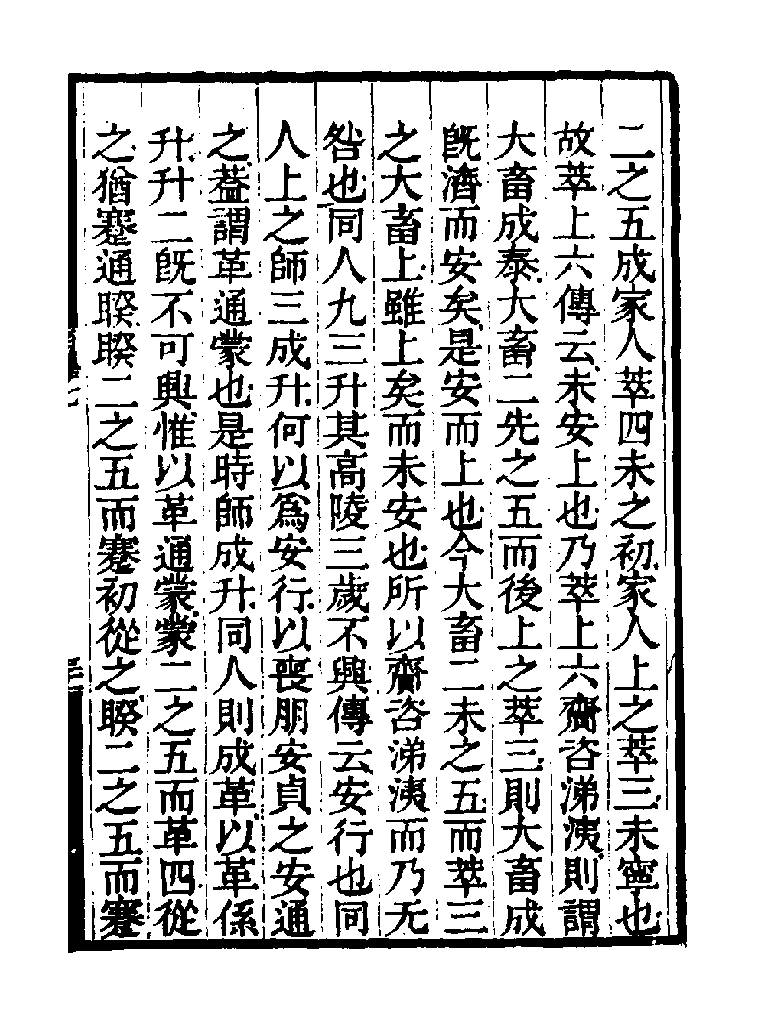 二之五成家人萃四未之初家人上之萃三未寧也
故萃上六傳云未安上也乃萃上六齎咨涕洟則謂
大畜成泰大畜二先之五而後上之萃三則大畜成
旣濟而安矣是安而上也今大畜二未之五而萃三
之大畜上雖上矣而未安也所以齎咨涕洟而乃无
咎也同人九三升其高陵三歲不興傳云安行也同
人上之師三成升何以爲安行以喪朋安貞之安通
之葢謂革通蒙也是時師成升同人則成革以革係
升升二旣不可興惟以革通蒙蒙二之五而革四從
之猶蹇通睽睽二之五而蹇初從之睽二之五而蹇